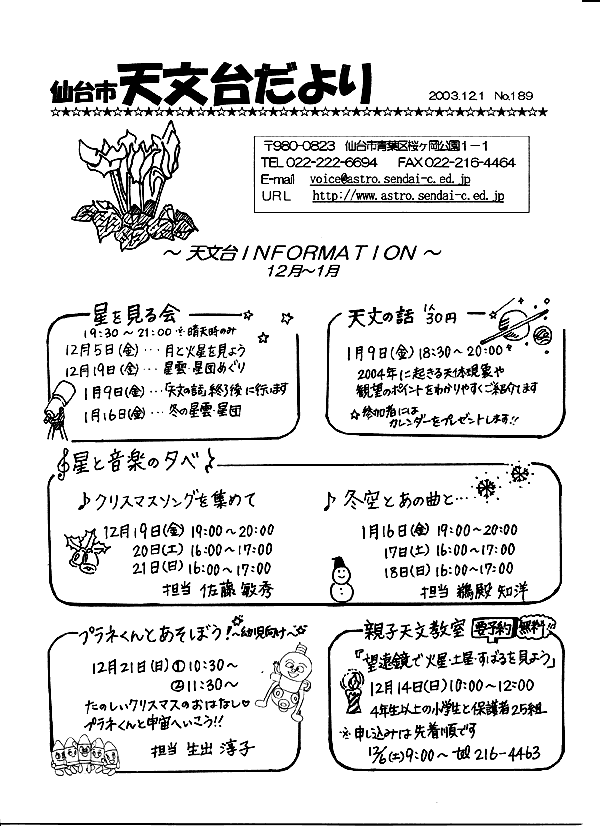 仙台市 天文台だより 2003.12.1 No.189
〒980-0823 仙台市青葉区桜ヶ岡公園1-1
TEL 022-222-6694 FAX 022-216-4464
E-mail voice@astro.sendai-c.ed.jp
URL http://www.astro.sendai-c.ed.jp
～ 天文台 INFORMATION ～
12月～1月
星を見る会
19:30～21:00 ※晴天時のみ
12月5日(金)…月と火星を見よう
12月19日(金)…星雲・星団めぐり
1月9日(金)…「天文の話」終了後に行います
1月16日(金)…冬の星雲・星団
天文の話 1人30円
1月9日(金) 18:30～20:00
2004年に起きる天体現象や
観望のポイントをわかりやすくご紹介します
☆参加者には
カレンダーをプレゼントします!!
星と音楽の夕べ
♪クリスマスソングを集めて
12月19日(金) 19:00～20:00
20日(土) 16:00～17:00
21日(日) 16:00～17:00
担当 佐藤 敏秀
♪冬空とあの曲と…
1月16日(金) 19:00～20:00
17日(土) 16:00～17:00
18日(日) 16:00～17:00
担当 鵜殿 知洋
プラネくんとあそぼう!～幼児向け～
12月21日(日) ①10:30～
②11:30～
たのしいクリスマスのおはなし♡
プラネくんと宇宙へいこう!!
担当 生出 淳子
親子天文教室 要予約 無料!!
『望遠鏡で火星・土星・すばるを見よう』
12月14日(日) 10:00～12:00
4年生以上の小学生と保護者25組
※申し込みは先着順です
12/6(土) 9:00～ tel 216-4463